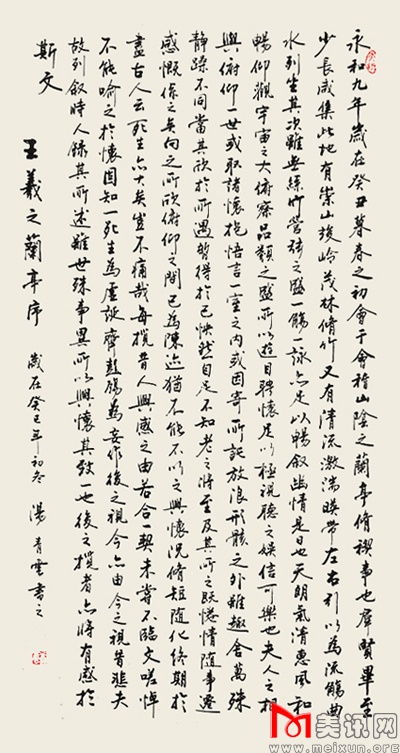 永和九年歲在癸丑暮春之初會于會稽山陰之蘭亭脩禊事也群賢畢至
少長咸集此地有崇山峻嶺茂林脩竹又有清流激湍暎帶左右引以為流觴曲
水列坐其次雖無絲竹管弦之盛一觴一詠亦足以暢敘幽情是日也天朗氣清惠風和
暢仰觀宇宙之大俯察品類之盛所以遊目騁懷足以極視聽之娛信可樂也夫人之相
與俯仰一世或取諸懷抱悟言一室之內或因寄所託放浪形骸之外雖趣舍萬殊
靜躁不同當其欣於所遇暫得於己怏然自足不知老之將至及其所之既惓情隨事遷
感慨係之矣向之所欣俯仰之間已為陳迹猶不能不以之興懷況脩短隨化終期於
盡古人云死生亦大矣豈不痛哉每攬昔人興感之由若合一契未嘗不臨文嗟悼
不能喻之於懷固知一死生為虛誕齊彭殤為妄作後之視今亦由今之視昔悲夫
故列敘時人錄其所述雖世殊事異所以興懷其致一也後之攬者亦將有感於
斯文 王羲之蘭亭序 歲在癸巳年初冬 湯青雲書之
美讯网
www.meixun.org